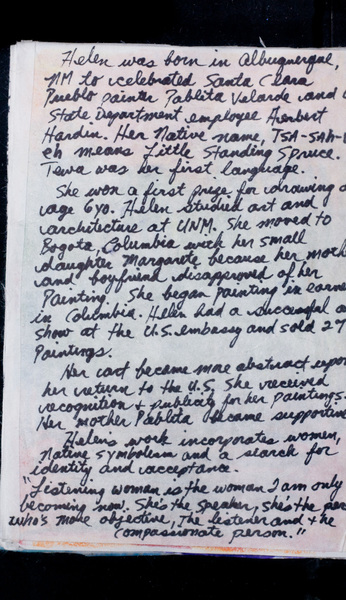 Helen was born in Albuquerque,
NM to celebrated Santa Clara
Pueblo painter Pablita Velarde and
State Department employee Herbert
Hardin. Her Native name, TSA-SAH-
eh means Little Standing Spruce.
Tewa was her first language.
She won a first prize for drawing
age 6yo. Helen studied art and
architecture at UNM. She moved to
Bogota, Columbia with her small
daughter Margarete because her moth
and boyfriend disapproved of her
Painting. She began painting in earne
in Columbia. Helen had a successful a
show at the U.S. embassy and sold 27
Paintings.
Her art became more abstract upon
her return to the U.S. She received
recognition + publicity for her paintings.
Her mother Pablita became supportive
Helen's work incorporates women,
Native symbolism and a search for
identity and acceptance.
"Listening woman is the woman I am only
becoming now. She's the speaker, she's the per
who's more objective, The listener and the
compassionate person."